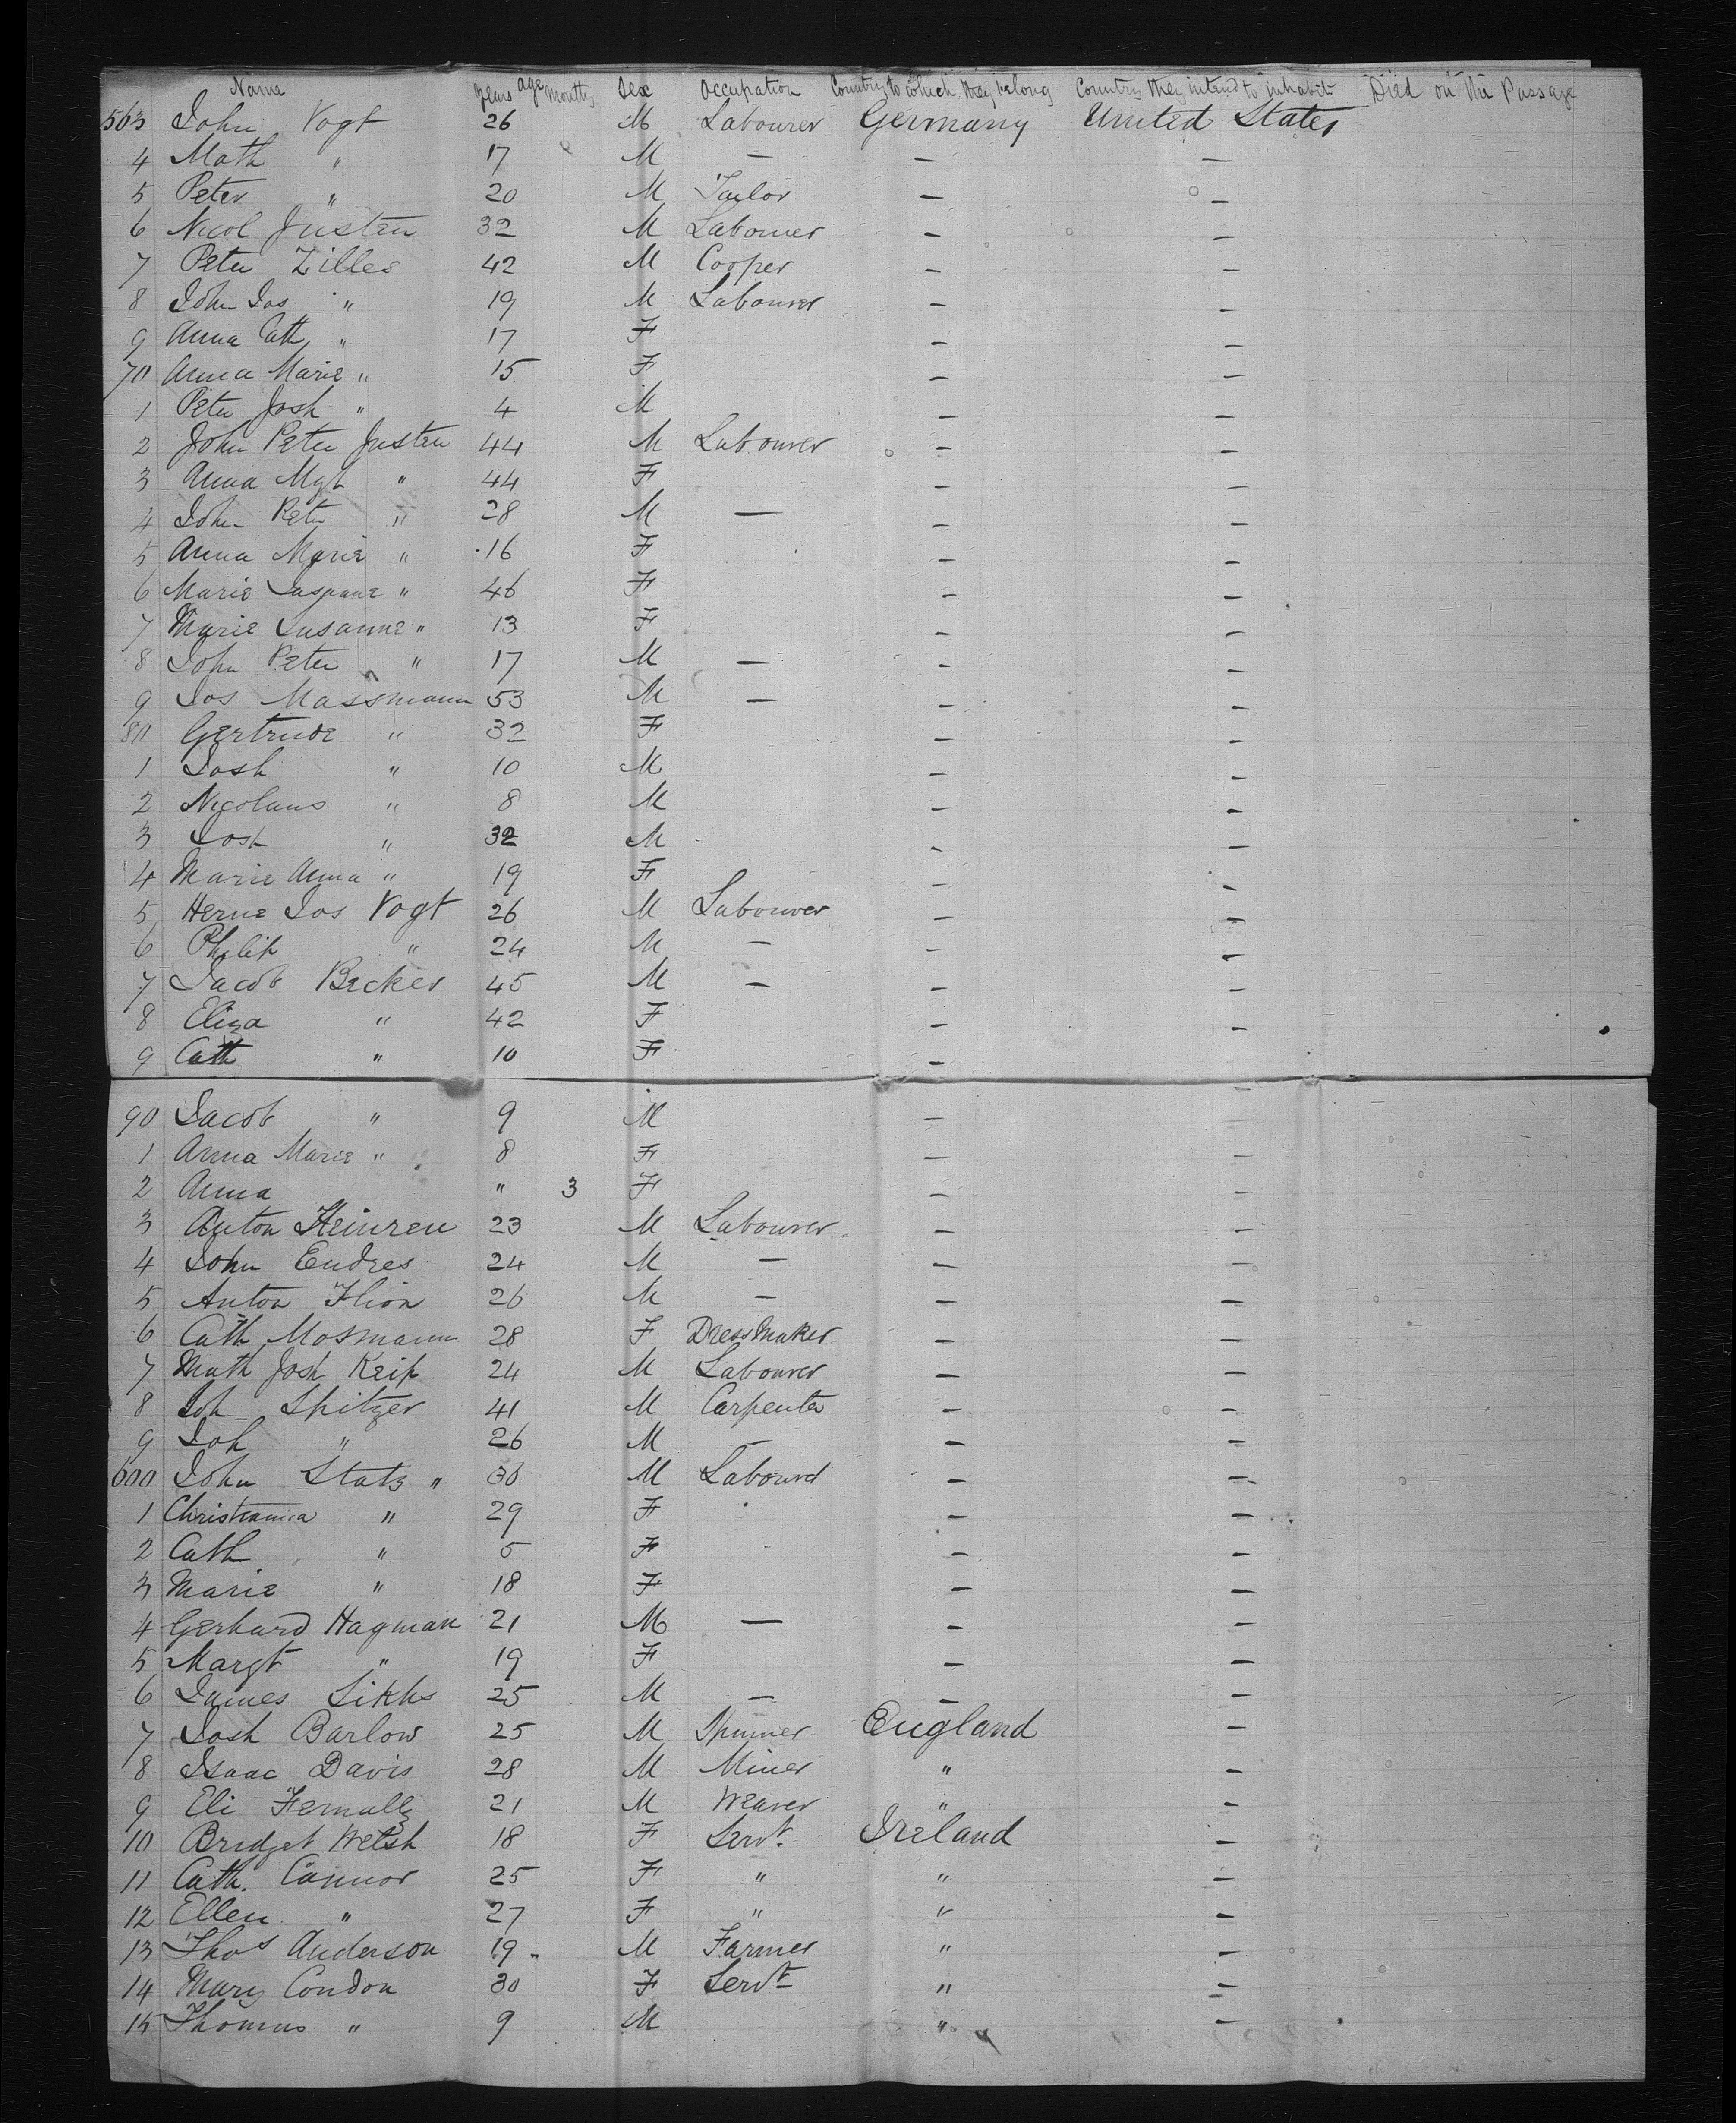 Name Years Age Months Sex Occupation Country to which they belong Country they intend to inhabit Died on the Passage
563 John Vogt 26 M Labourer Germany United States
4 Math " 17 M — — —
5 Peter " 20 M Tailor — —
6 Nicol Justen 32 M Labourer — —
7 Peter Zilles 42 M Cooper — —
8 John Jos " 19 M Labourer — —
9 Anna Cath " 17 F — —
70 Anna Marie " 15 F — —
1 Peter Josh " 4 M — —
2 John Peter Justen 44 M Labourer — —
3 Anna Mgt " 44 F — —
4 John Peter " 28 M — — —
5 Anna Marie " 16 F — —
6 Marie " 46 F — —
7 Marie Susanne " 13 F — —
8 John Peter " 17 M — — —
9 Jos Massmann 53 M — — —
80 Gertrude " 32 F — —
1 Josh " 10 M — —
2 Nicolaus " 8 M — —
3 Josh " 32 M — —
4 Marie Anna " 19 F — —
5 Herne Jos Vogt 26 M Labourer — —
6 Philip " 24 M — — —
7 Jacob Becker 45 M — — —
8 Eliza " 42 F — —
9 Cath " 10 F —
90 Jacob " 9 M — —
1 Anna Marie " 8 F — —
2 Anna " 3 F — —
3 Anton Heinren 23 M Labourer — —
4 John Endres 24 M — — —
5 Anton 26 M — — —
6 Cath Mosmann 28 F DressMaker — —
7 Math Josh Keip 24 M Labourer — —
8 Joh Spitzer 41 M Carpenter — —
9 Joh " 26 M — — —
600 John Statz " 30 M Labourer — —
1 Christianna " 29 F — —
2 Cath " 5 F — —
3 Marie " 18 F — —
4 Gerhard Hagman 21 M — — —
5 Margt " 19 F — —
6 James 25 M — — —
7 Josh Barlow 25 M Spinner England —
8 Isaac Davis 28 M Miner " —
9 Eli 21 M Weaver " —
10 Bridget Welsh 18 F Servt. Ireland —
11 Cath. Connor 25 F " " —
12 Ellen " 27 F " " —
13 Thos Anderson 19 M Farmer " —
14 Mary Condon 30 F Servt " —
15 Thomas " 9 M " —